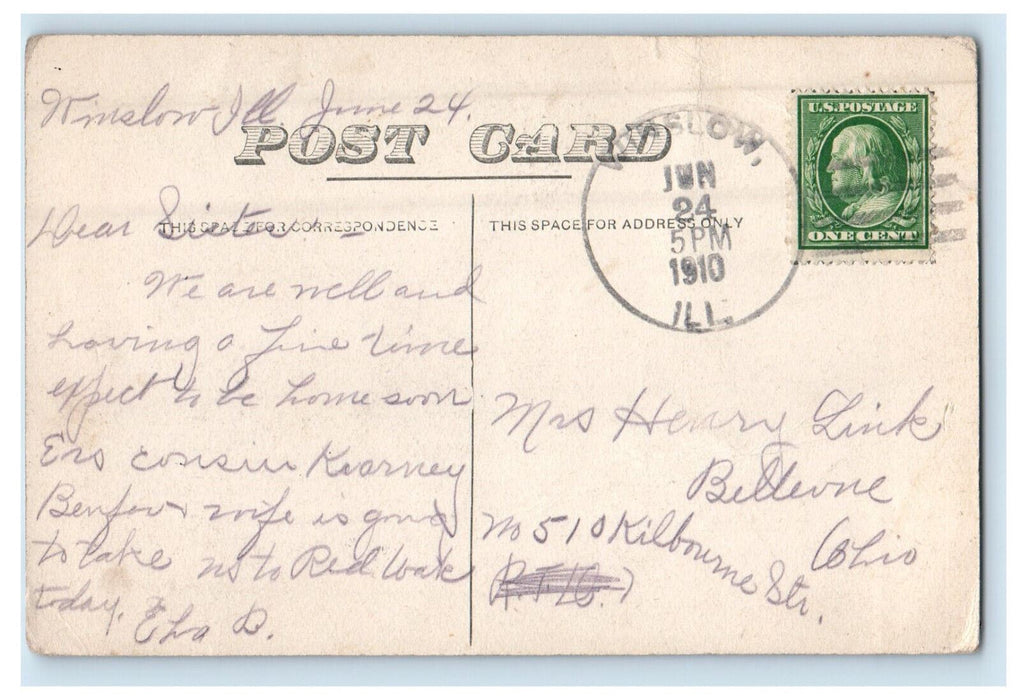 Winslow Ill June 24.
POST CARD
THIS SPACE FOR CORRESPONDENCE
THIS SPACE FOR ADDRESS ONLY
WINSLOW,
JUN
24
5PM
1910
ILL.
U.S. POSTAGE
ONE CENT
Dear Sister –
We are well and
having a fine time
expect to be home soon
cousin Kearney
& wife is going
to take us to Red Oak
today.
B.
Mrs Henry Link
Bellevue
Ohio
No 510 Kilbourne Str.